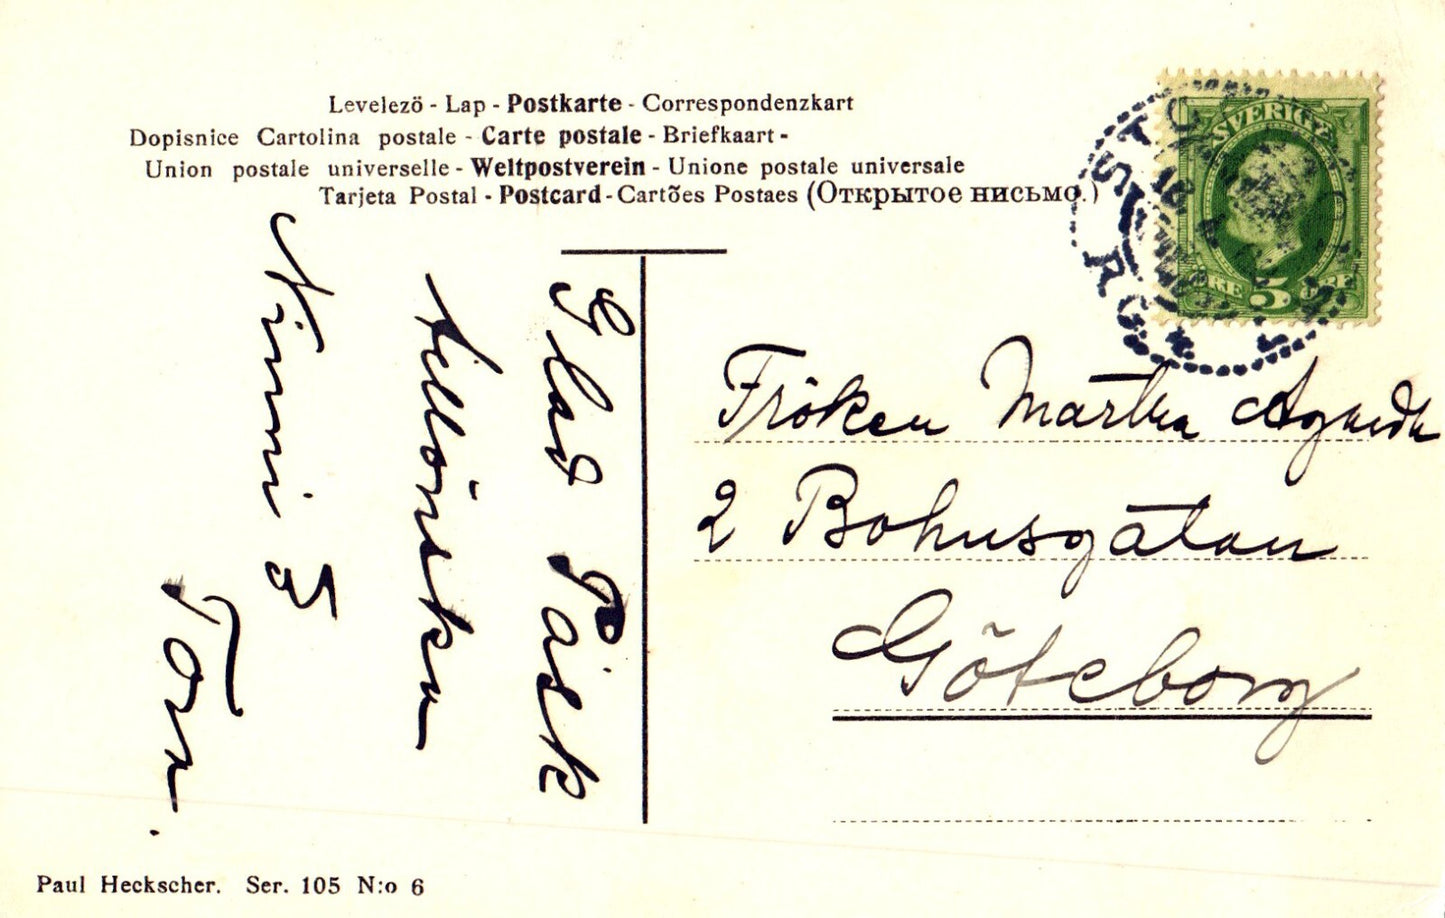 Levelezö - Lap - Postkarte - Correspondenzkart
Dopisnice Cartolina postale - Carte postale - Briefkaart -
Union postale universelle - Weltpostverein - Unione postale universale
Tarjeta Postal - Postcard - Cartões Postaes (Открытое нисьмо.)
SVERIGE
5
ÖRE
Glad Påsk
tillönska
Ninni &
Tom.
Fröken Märtha Agardh
2 Bohusgatan
Göteborg
Paul Heckscher. Ser. 105 N:o 6